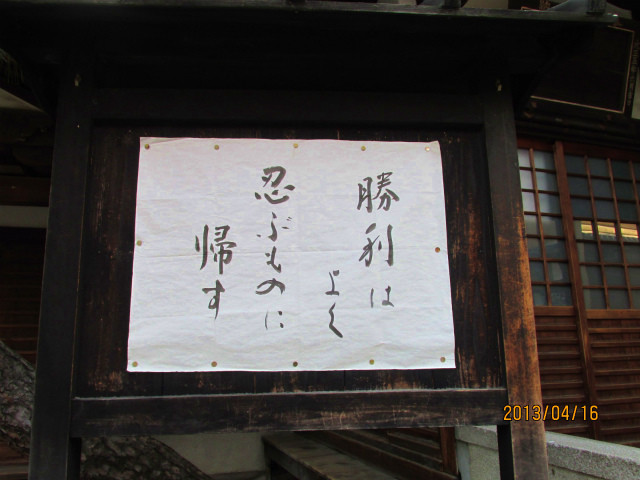 勝利は
よく
忍ぶものに
帰す
2013/04/16